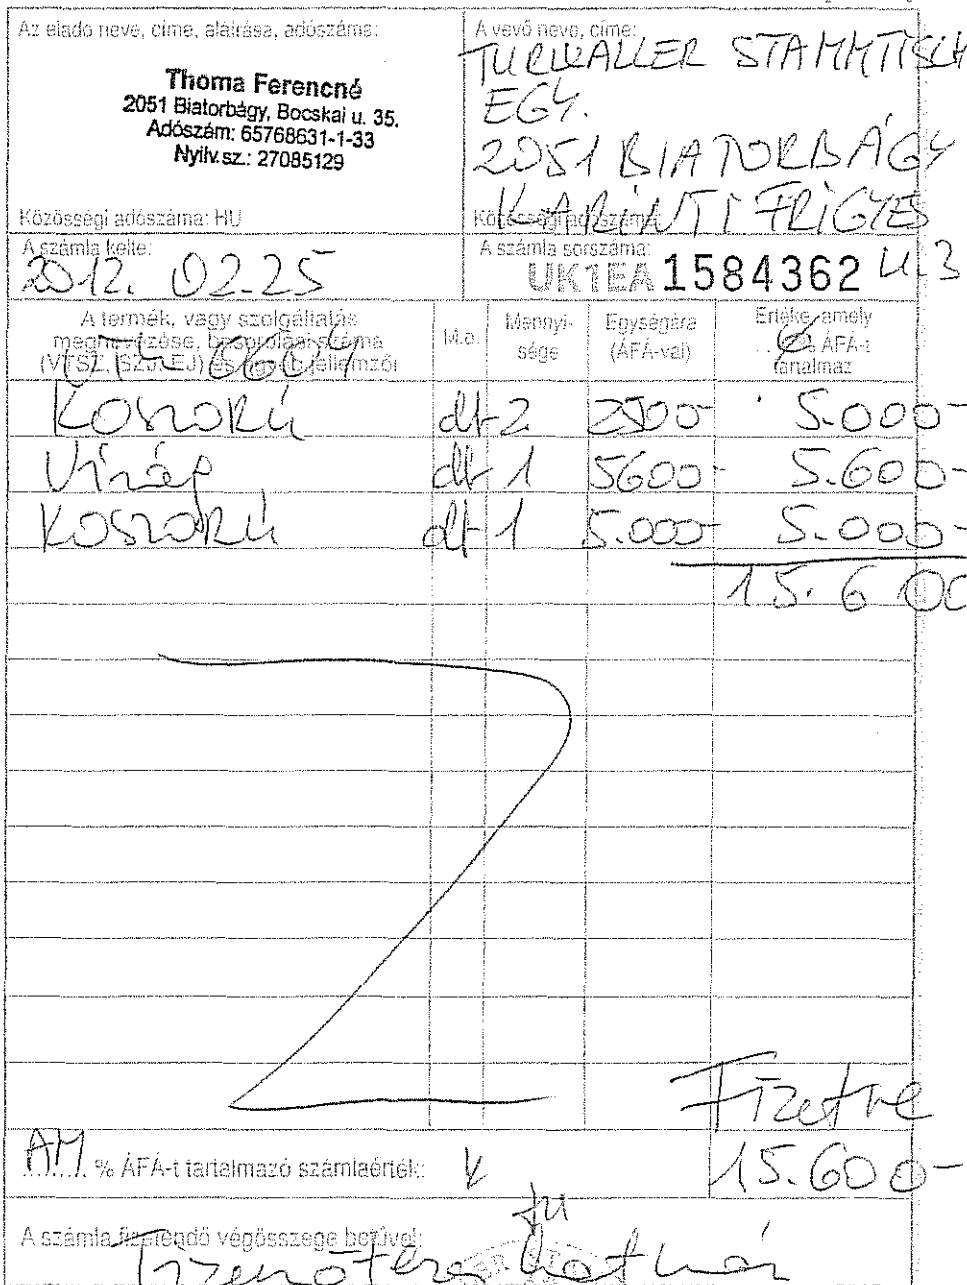 Az eladó neve, címe, aláírása, adószáma:
Thoma Ferencné
2051 Biatorbágy, Bocskai u. 35.
Adószám: 65768631-1-33
Nyilv.sz.: 27085129
Közösségi adószáma: HU
A vevő neve, címe:
TURWALLER STAMMTISCH
EGY.
2051 BIATORBÁGY
KARINTI FRIGYES
Közösségi adószáma:
u. 3
A számla kelte:
2012. 02.25
A számla sorszáma:
UK1EA 1584362
A termék, vagy szolgáltatás megnevezése, besorolási száma (VTSZ, SZJ, EJ) és egyéb jellemzői
M.e.
Mennyi-
sége
Egységára
(ÁFÁ-val)
Értéke, amely
% ÁFÁ-t
tartalmaz
Koszorú db 2 2500- 5.000-
Virág db 1 5600- 5.600-
Koszorú db 1 5.000- 5.000-
15.600
Fizetve
AM % ÁFÁ-t tartalmazó számlaérték: 15.600-
A számla fizetendő végösszege betűvel: